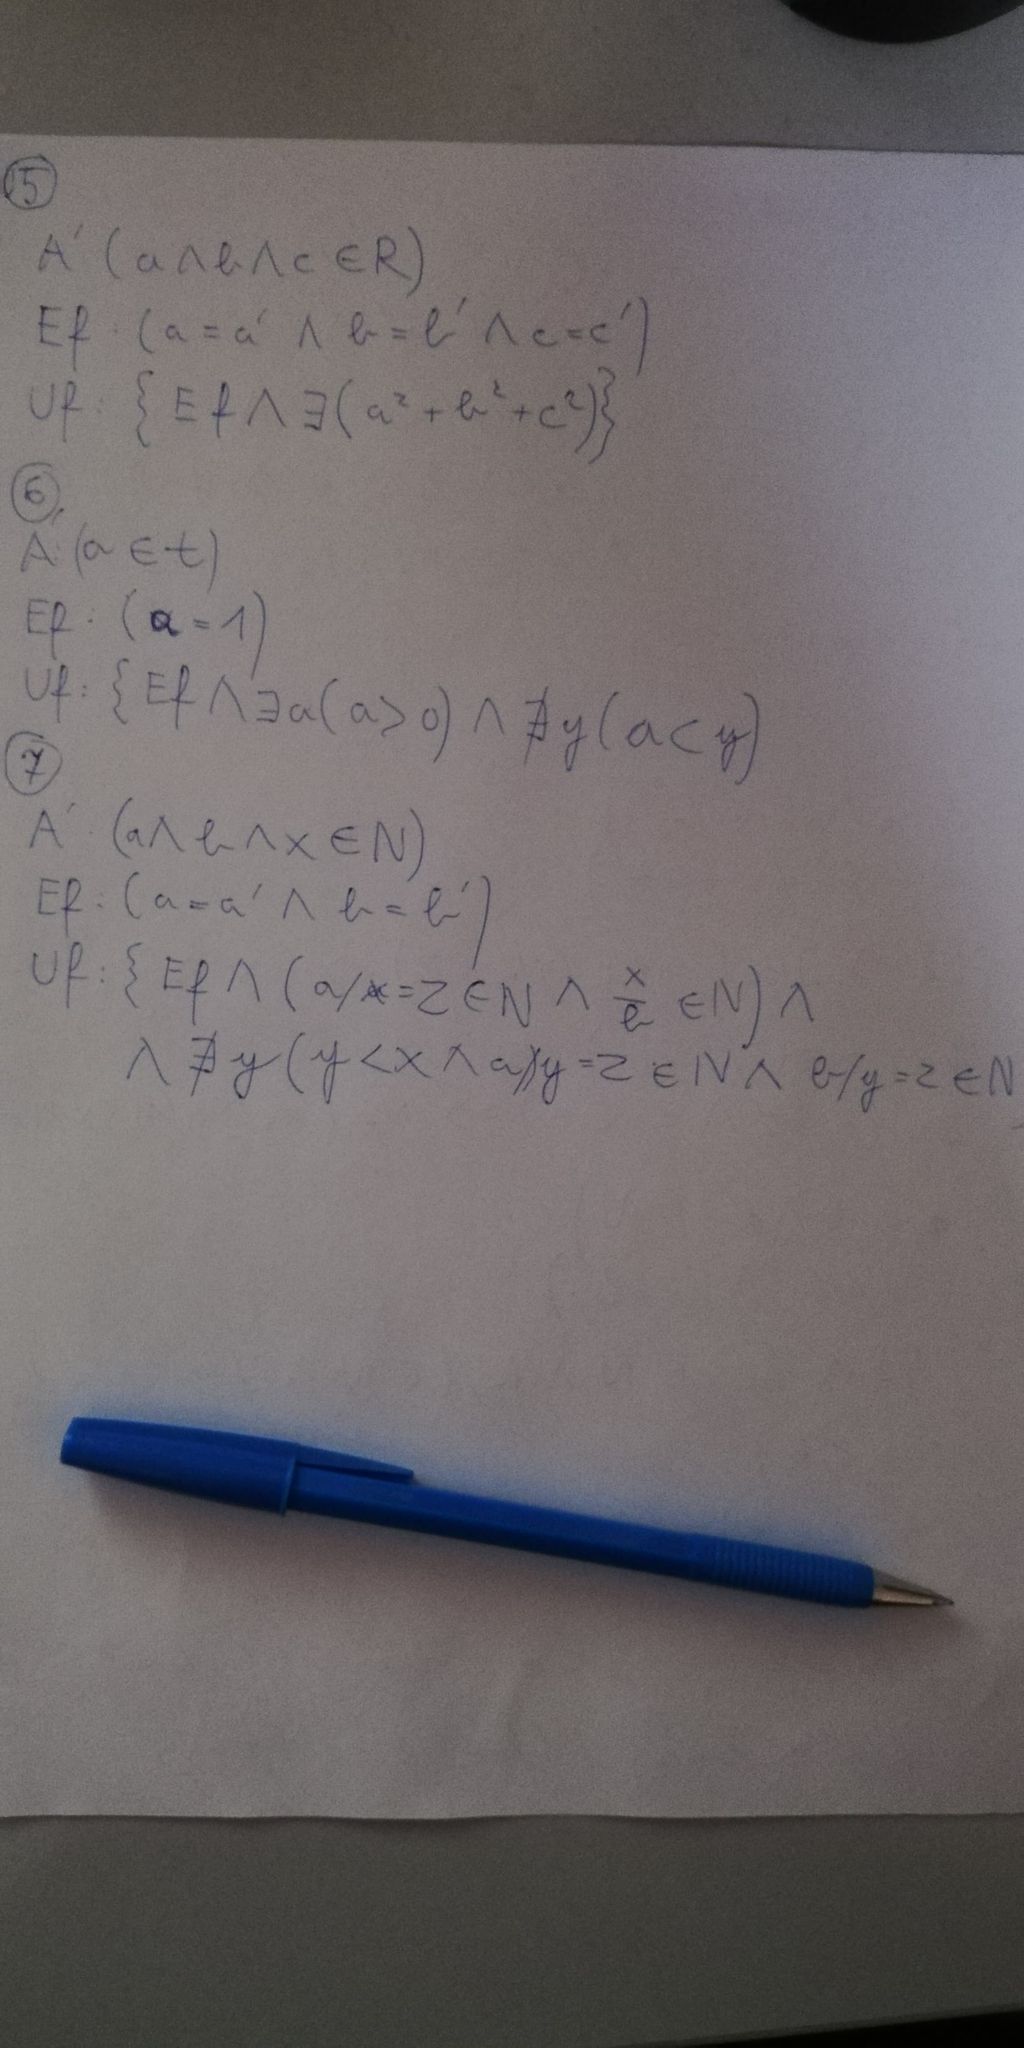 5
A' (a∧b∧c∈R)
Ef: (a=a' ∧ b=b' ∧ c=c')
Uf: {Ef∧∃(a²+b²+c²)}
6,
A: (a∈t)
Ef: (a=1)
Uf: {Ef∧∃a(a>0)∧∄y(a<y)
7
A' (a∧b∧x∈N)
Ef: (a=a' ∧ b=b')
Uf: {Ef∧(a/x=z∈N ∧ x/b ∈N)∧
∧∄y(y<x∧a/y=z∈N∧ b/y=z∈N